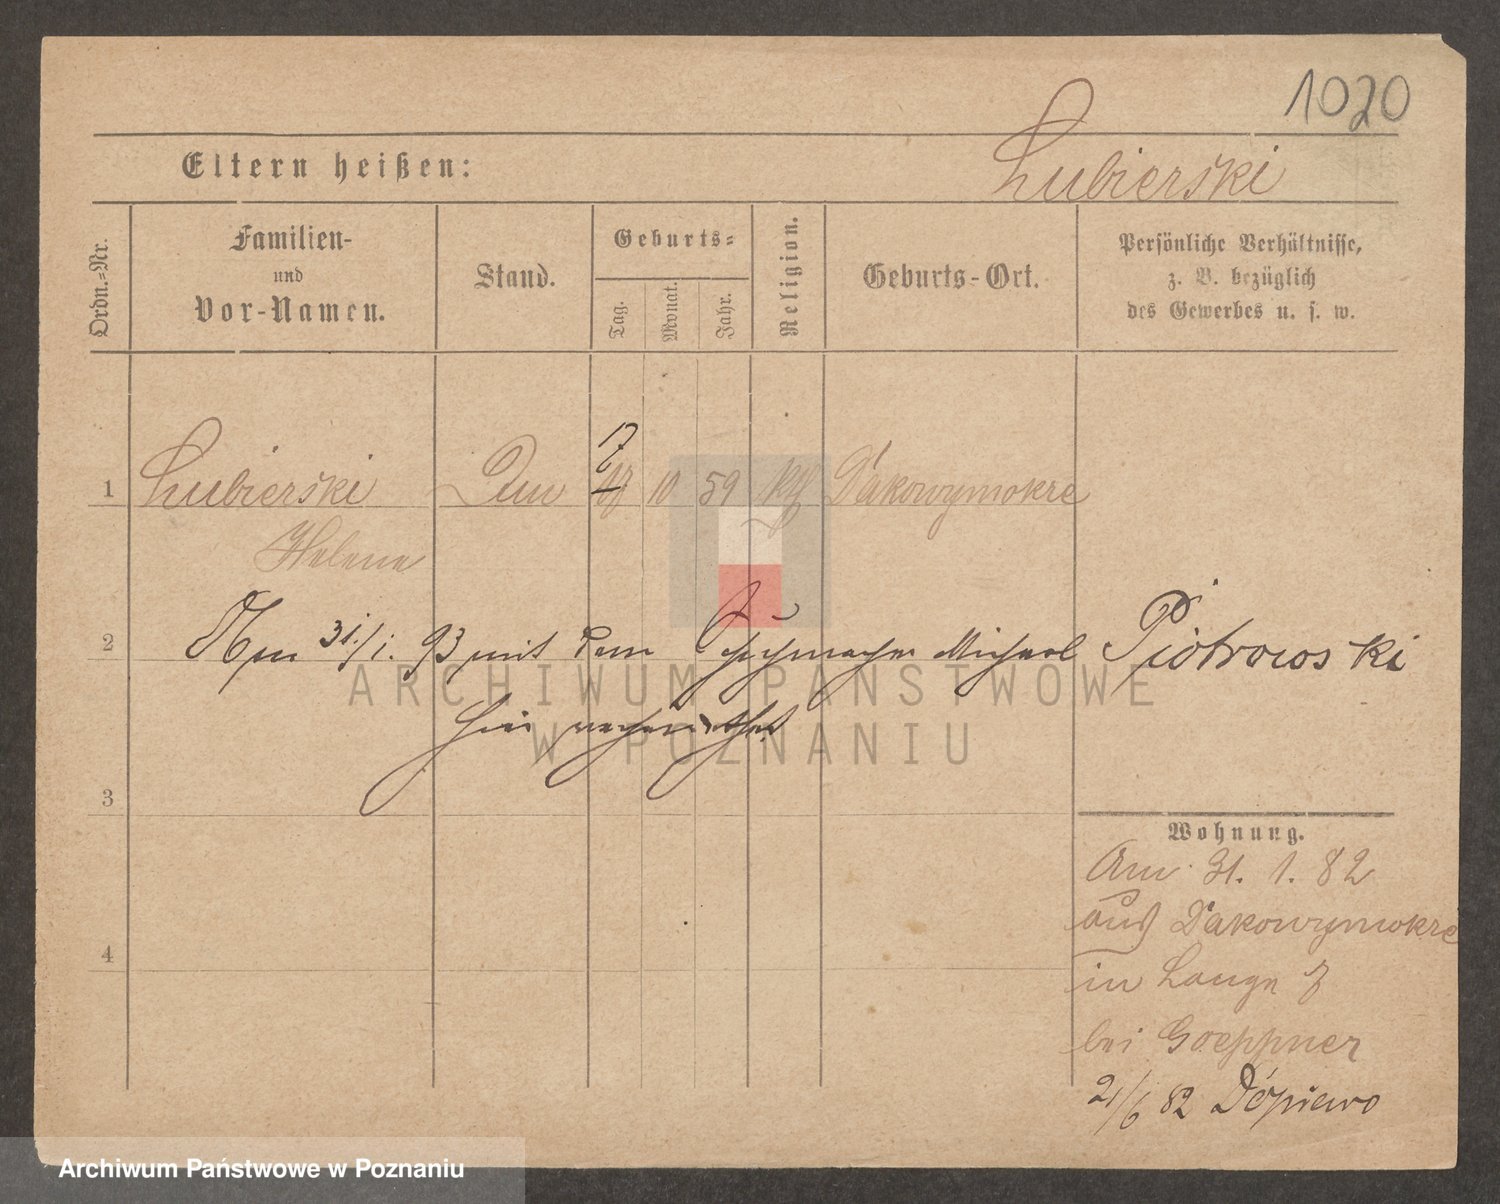 1020
Eltern heißen:
Lubierski
Ordn.-Nr.
Familien-
und
Vor-Namen.
Stand.
Geburts-
Tag.
Monat.
Jahr.
Religion.
Geburts-Ort.
Persönliche Verhältnisse,
z. B. bezüglich
des Gewerbes u. s. w.
17
1 Lubierski 10 59 kth Dakowymokre
Helene
2 Am 31/1. 93 mit dem Schuhmacher Michael Piotrowski
hier verheirathet
3
Wohnung.
Am 31. 1. 82
aus Dakowymokre
4
in Lange 7
bei Goeppner
21/6 82 Dopiewo
ARCHIWUM PAŃSTWOWE
W POZNANIU
Archiwum Państwowe w Poznaniu